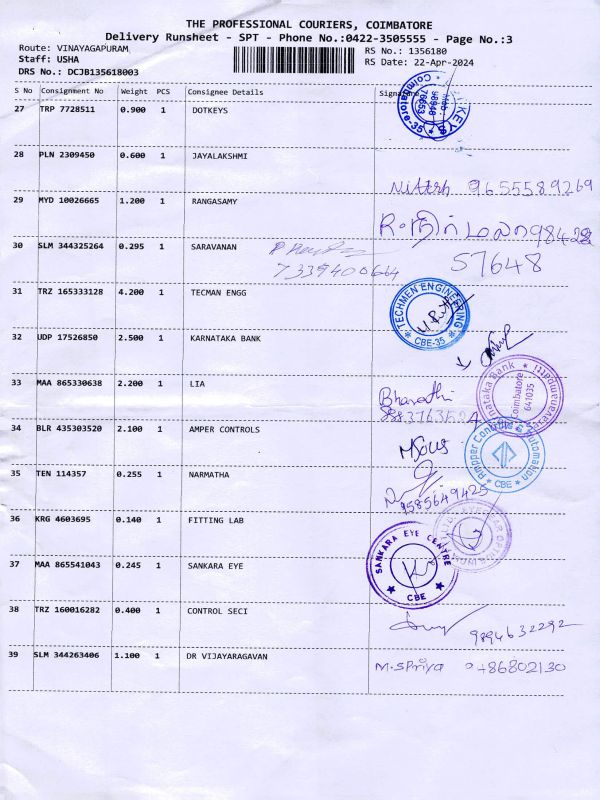 THE PROFESSIONAL COURIERS, COIMBATORE
Delivery Runsheet - SPT - Phone No.:0422-3505555 - Page No.:3
Route: VINAYAGAPURAM,
RS No.: 1356180
Staff: USHA
RS Date: 22-Apr-2024
DRS No.: DCJB135618003
S No Consignment No Weight PCS Consignee Details Signature
27 TRP 7728511 0.900 1 DOTKEYS
Coimbatore-35
28 PLN 2309450 0.600 1 JAYALAKSHMI
Nitesh 9655589269
29 MYD 10026665 1.200 1 RANGASAMY
98428
57648
30 SLM 344325264 0.295 1 SARAVANAN
7339400664
31 TRZ 165333128 4.200 1 TECMAN ENGG
TECHMEN ENGINEERING
CBE-35
32 UDP 17526850 2.500 1 KARNATAKA BANK
Karnataka Bank
Coimbatore
641035
33 MAA 865330638 2.200 1 LIA
Bharathi
34 BLR 435303520 2.100 1 AMPER CONTROLS
Ampper Controls & Automation
CBE
35 TEN 114357 0.255 1 NARMATHA
9585649425
36 KRG 4603695 0.140 1 FITTING LAB
37 MAA 865541043 0.245 1 SANKARA EYE
SANKARA EYE CENTRE
CBE
38 TRZ 160016282 0.400 1 CONTROL SECI
9894632292
39 SLM 344263406 1.100 1 DR VIJAYARAGAVAN
M.SPriya